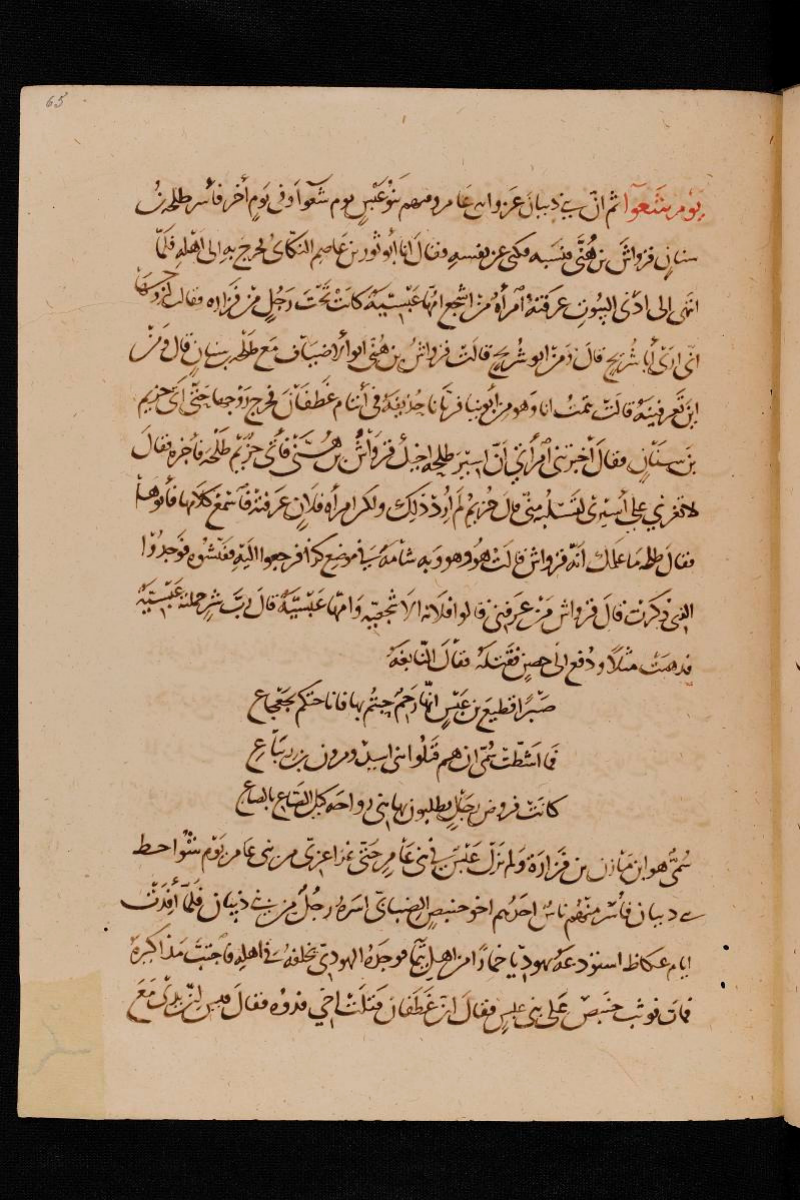 65
يوم شعوآ ثم ان بني ذبيان غزوا بني عامر ومنهم بنو عبس يوم شعوآ وفى يوم آخر فأسر طلحه بن
سنان قرواش بن هُنَّى فنسبه فكنى عن نفسه وقال انا أبو ثور بن عاصم البكائ فخرج به الى اهله فلمّا
انتهى الى ادنى البيوت عرفته امرأة من اشجع امّها عَبْسيّة كانَتْ تَحْتَ رَجُلٍ من فزاره فقالت لزوجها
انى ارى أبا شُريح قال وَمَن ابو شُريح قالَت قرواشُ بن هُنَى ابو الأضياف مَع طلحه بن سنان قال ومن
اين تعرفينه قالت يتمتُ انا وهو من أبوينا فربّانا حُذيفة فى أيتام غطفان فخرج زوجها حتى اتى خزيم
بن سنان فقال اخبرتنى امرأتي انّ اسير طلحه اخيك قرواش بن هُنَىّ فأتى خُزيم طلحه فأخبره فقال
لا تغرني على أسيرى لتسلبه منّى قال خزيم لم أرد ذلك ولكن امرأه فلان عرفته فاسمع كلامها فأتوها
فقال طلحه ما علمك انّه قرواش قالت هُو هو وبه شامه فى موضع كذا فرجعوا اليه ففتشوه فوجدُوا
التى ذكرت قال قرواش مَن عرفنى قالوا فلانه الاشجعيّه وامّها عَبسيّةٌ قال رُبّ شرٍ حملته عَبسيّة
فذهبت مثلاً ودُفع الى حصن فقتله فقال النّابغه
صَبْرًا قطيع بن عَبْسٍ انّها رَحِمٌ جئتُم بها فاناختكم بجعجاع
فما اشطّت سُمىّ ان هم قتلوا بنى اسيد ومروان بن زنباع
كانت قروض رجالٍ يطلبون بها بنى رواحه كيل الصّاع بالصّاع
سُمىّ هو ابن مازن بن فزارة ولم تزل عَبسٌ في بنى عامر حتّى غزا غزىّ من بنى عامر يوم شواحط
بني ذبيان فأُسر منهُم ناسٌ احدُهم اخو حنبص الضبابى اسره رجُلٌ من بني ذبيان فلمّا أنفدت
ايام عكاظ استودعهُ يهوديّا خمارًا من اهل تيمآ فوجدهُ اليهودىّ يخلفهُ فى اهله فاجتبّ مَذاكيرهُ
فمات فوثب حنبص على بنى عبسٍ فقال انّ غَطَفان قتلَتْ اخي فدوه فقال قيس انّ يدى مَعَ